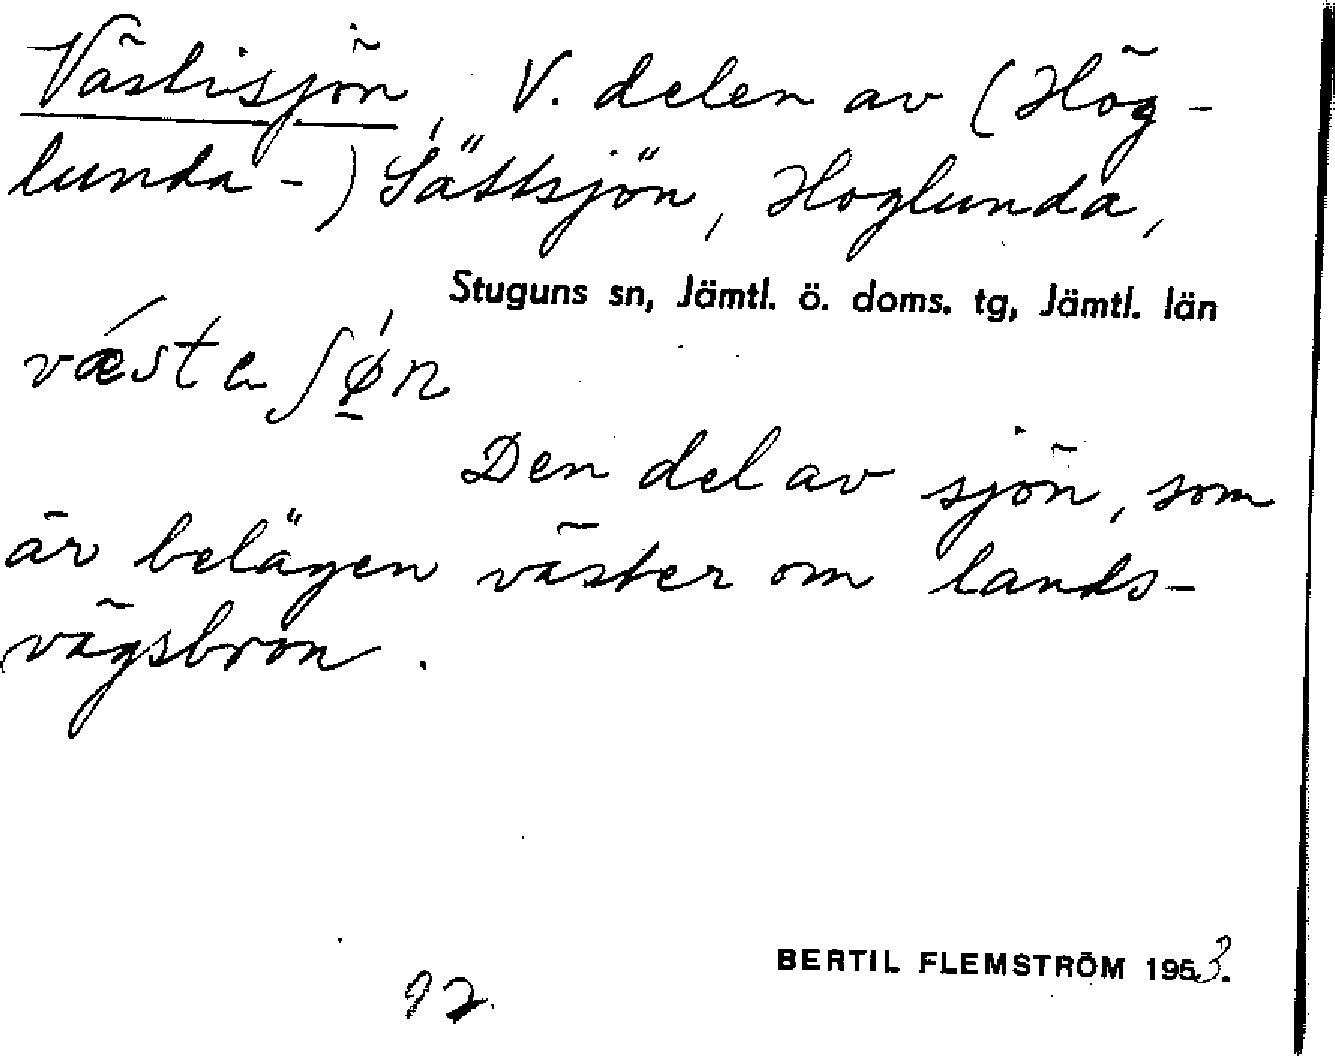 Västisjön, V. delen av (Hög-
lunda-) Sättsjön, Höglunda,
Stuguns sn, Jämtl. ö. doms. tg, Jämtl. län
væ´ste ʃø̱´n
Den del av sjön, som
är belägen väster om lands-
vägsbron.
BERTIL FLEMSTRÖM 1953.